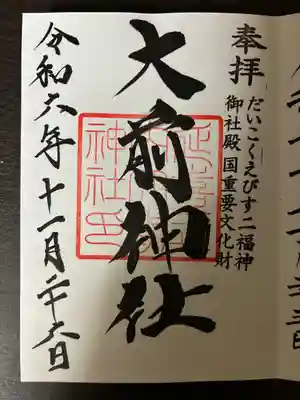 奉拝
だいこくえびす二福神
御社殿国重要文化財
大前神社
令和六年十一月二十六日